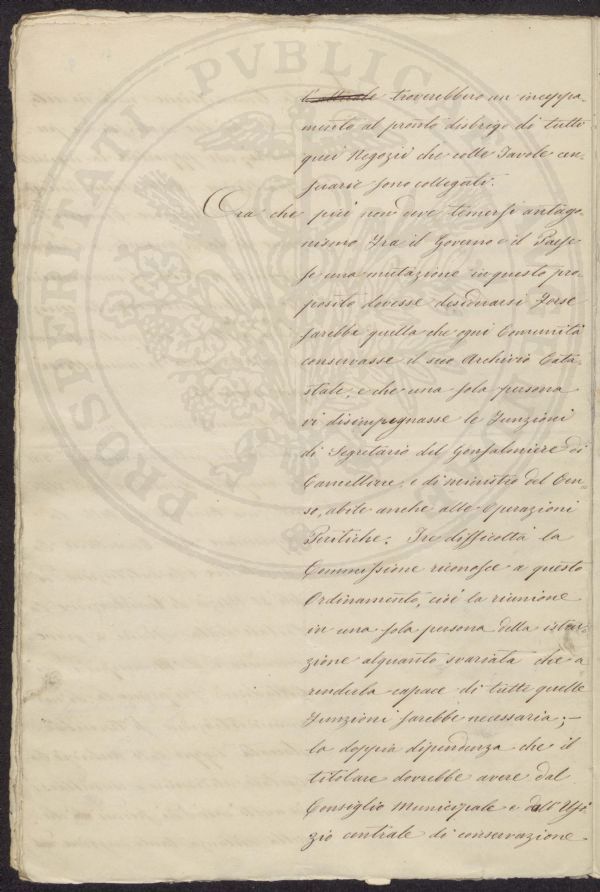 troverebbero un inceppa-
mento al pronto disbrigo di tutti
quei Negozii che colle Tavole cen-
suarie sono collegati.
Ora che più non deve temersi antago-
nismo Fra il Governo e il Paese
se una mutazione in questo pro-
posito dovesse desiderarsi Forse
sarebbe quella che ogni Comunità
conservasse il suo Archivio Cata-
stale, e che una sola persona
vi disimpegnasse le Funzioni
di Segretario del Gonfaloniere di
Cancelliere, e di ministro del Cen-
so, abile anche alle Operazioni
Peritiche; Tre difficoltà la
Commissione riconosce a questo
Ordinamento, cioè la riunione
in una sola persona della istru-
zione alquanto svariata che a
renderla capace di tutte quelle
Funzioni sarebbe necessaria; –
la doppia dipendenza che il
titolare dovrebbe avere dal
Consiglio Municipale e dall'Uffi-
zio centrale di conservazione -
PROSPERITATI PVBLICAE